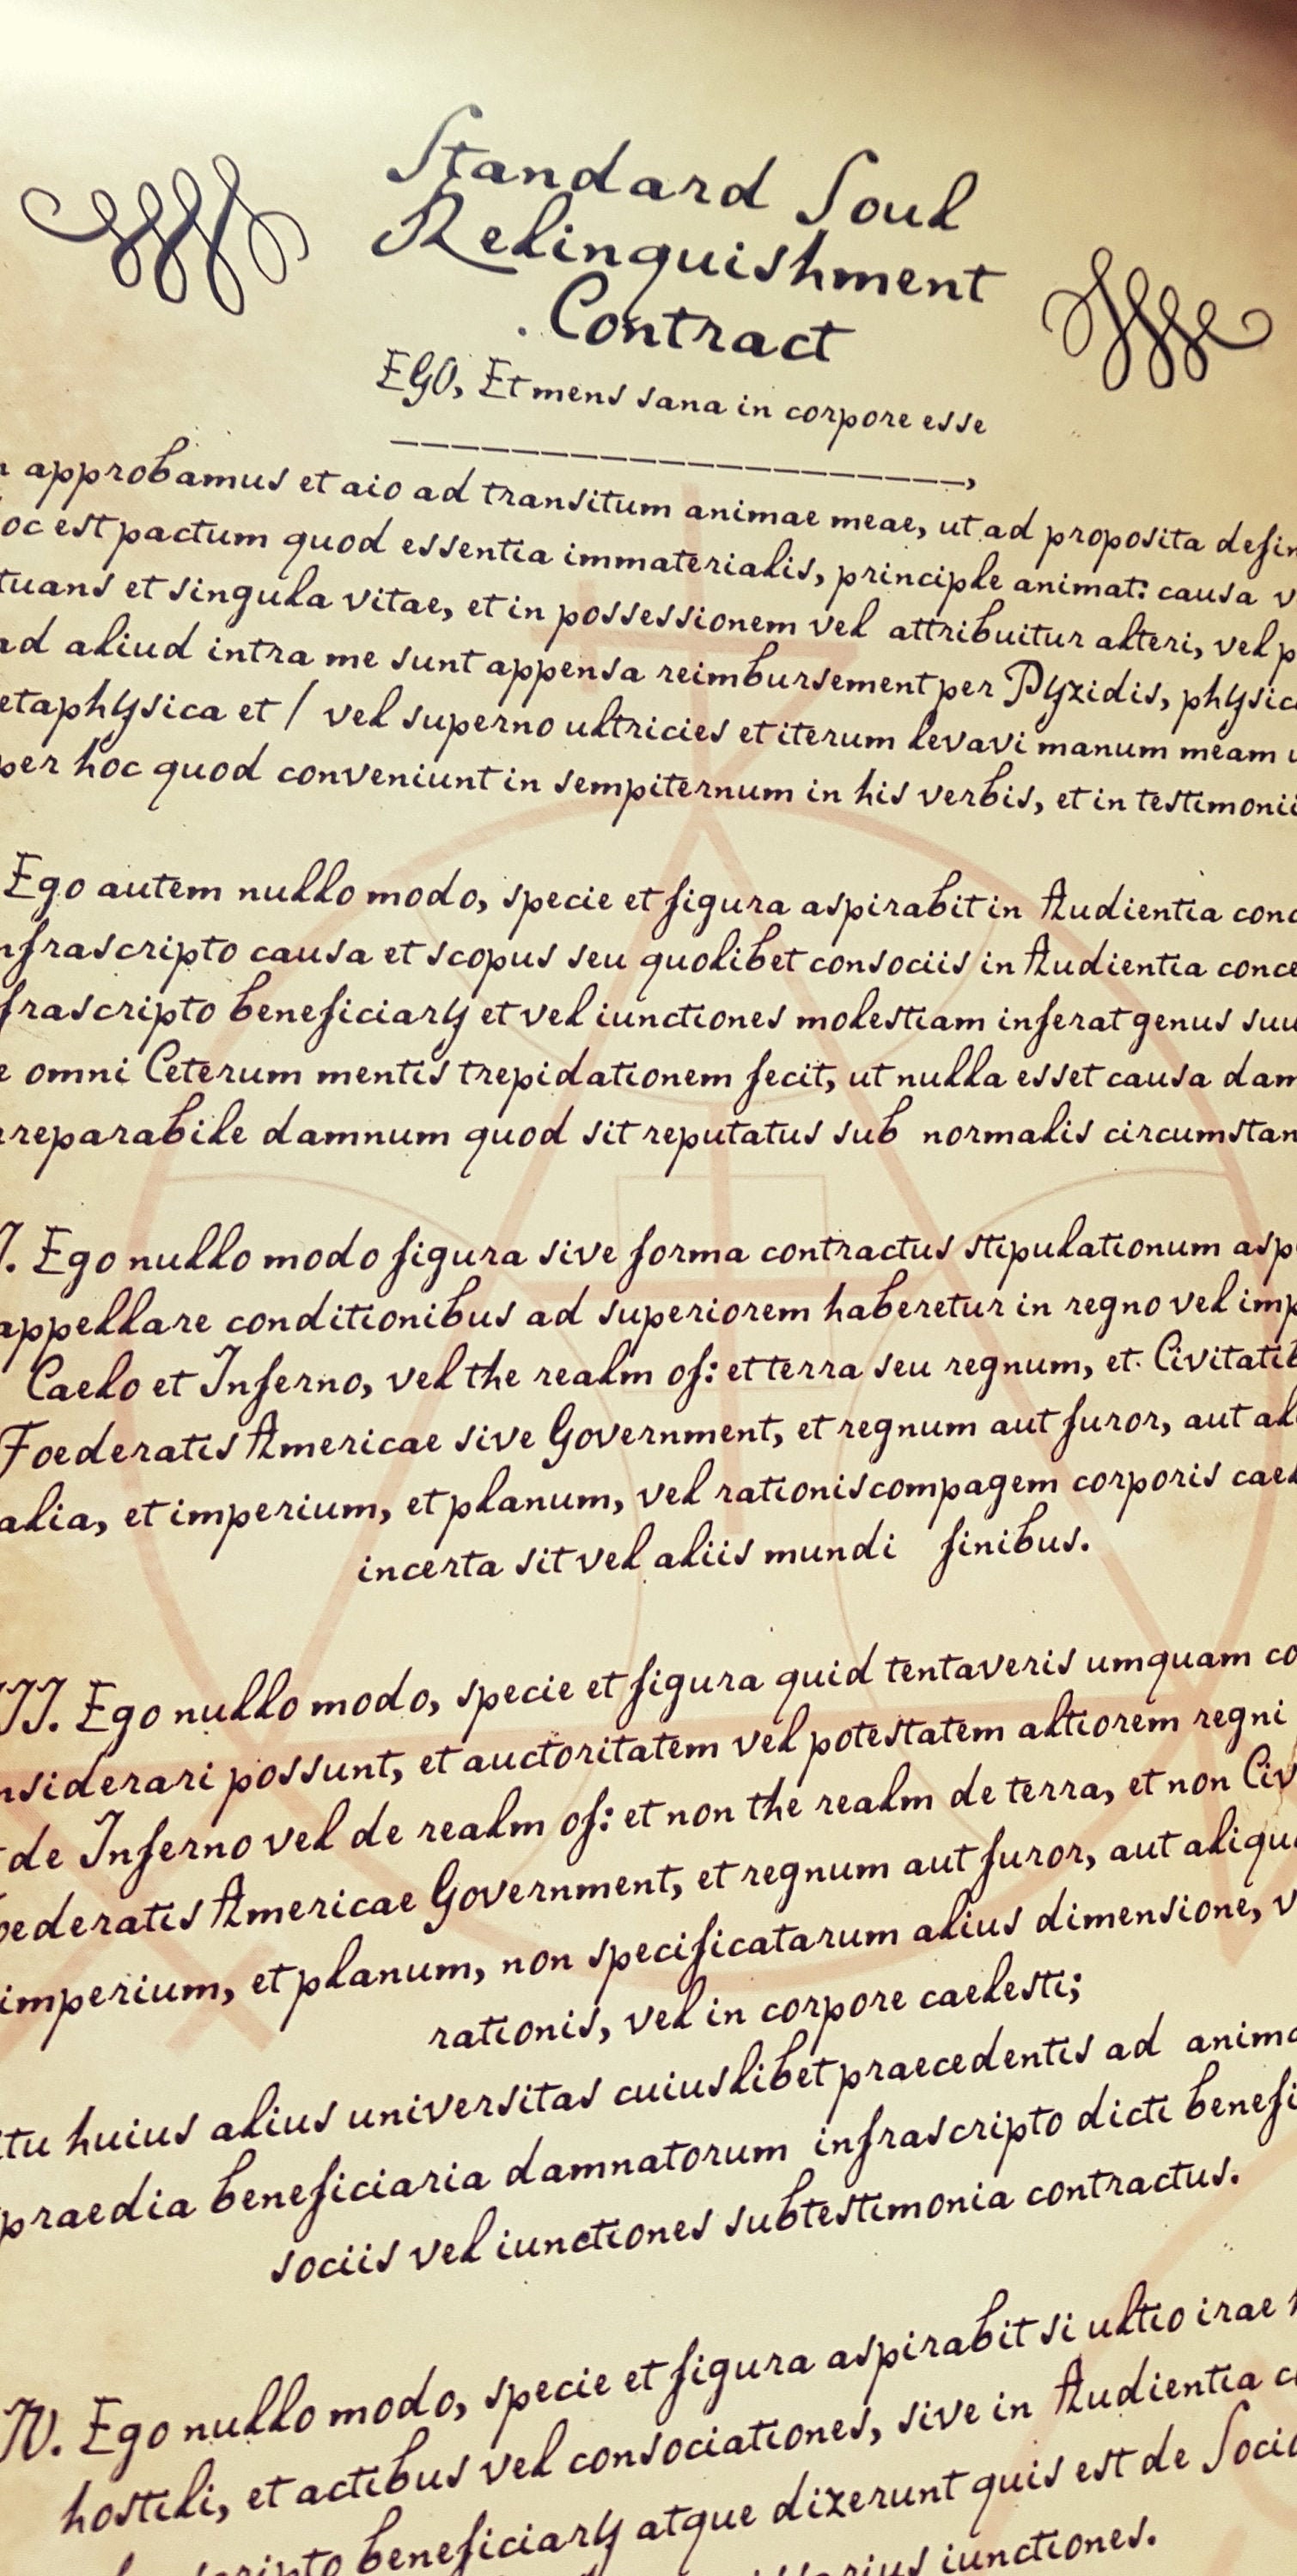 Standard Soul
Relinquishment
Contract
EGO, Et mens sana in corpore esse
approbamus et aio ad transitum animae meae, ut ad proposita
est pactum quod essentia immaterialis, principle animat: causa
et singula vitae, et in possessionem vel attribuitur alteri, vel
ad aliud intra me sunt appensa reimbursement per Pyxidis,
et / vel superno ultricies et iterum levavi manum meam
per hoc quod conveniunt in sempiternum in his verbis, et in
Ego autem nullo modo, specie et figura aspirabit in Audientia
causa et scopus seu quolibet consociis in Audientia
beneficiary et vel iunctiones molestiam inferat genus
omni Ceterum mentis trepidationem fecit, ut nulla esset causa
damnum quod sit reputatus sub normalis
Ego nullo modo figura sive forma contractus stipulationum
appellare conditionibus ad superiorem haberetur in regno vel
Caelo et Inferno, vel the realm of: et terra seu regnum, et
Foederatis Americae sive Government, et regnum aut furor, aut
alia, et imperium, et planum, vel rationis compagem corporis
incerta sit vel aliis mundi finibus.
III. Ego nullo modo, specie et figura quid tentaveris umquam
possunt, et auctoritatem vel potestatem altiorem regni
de Inferno vel de realm of: et non the realm de terra, et non
Americae Government, et regnum aut furor, aut
imperium, et planum, non specificatarum alius dimensione,
rationis, vel in corpore caelesti;
huius alius universitas cuiuslibet praecedentis ad
praedia beneficiaria damnatorum infrascripto dicti
sociis vel iunctiones subtestimonia contractus.
IV. Ego nullo modo, specie et figura aspirabit si ultio irae
hostili, et actibus vel consociationes, sive in Audientia
beneficiary atque dixerunt quis est de
iunctiones.